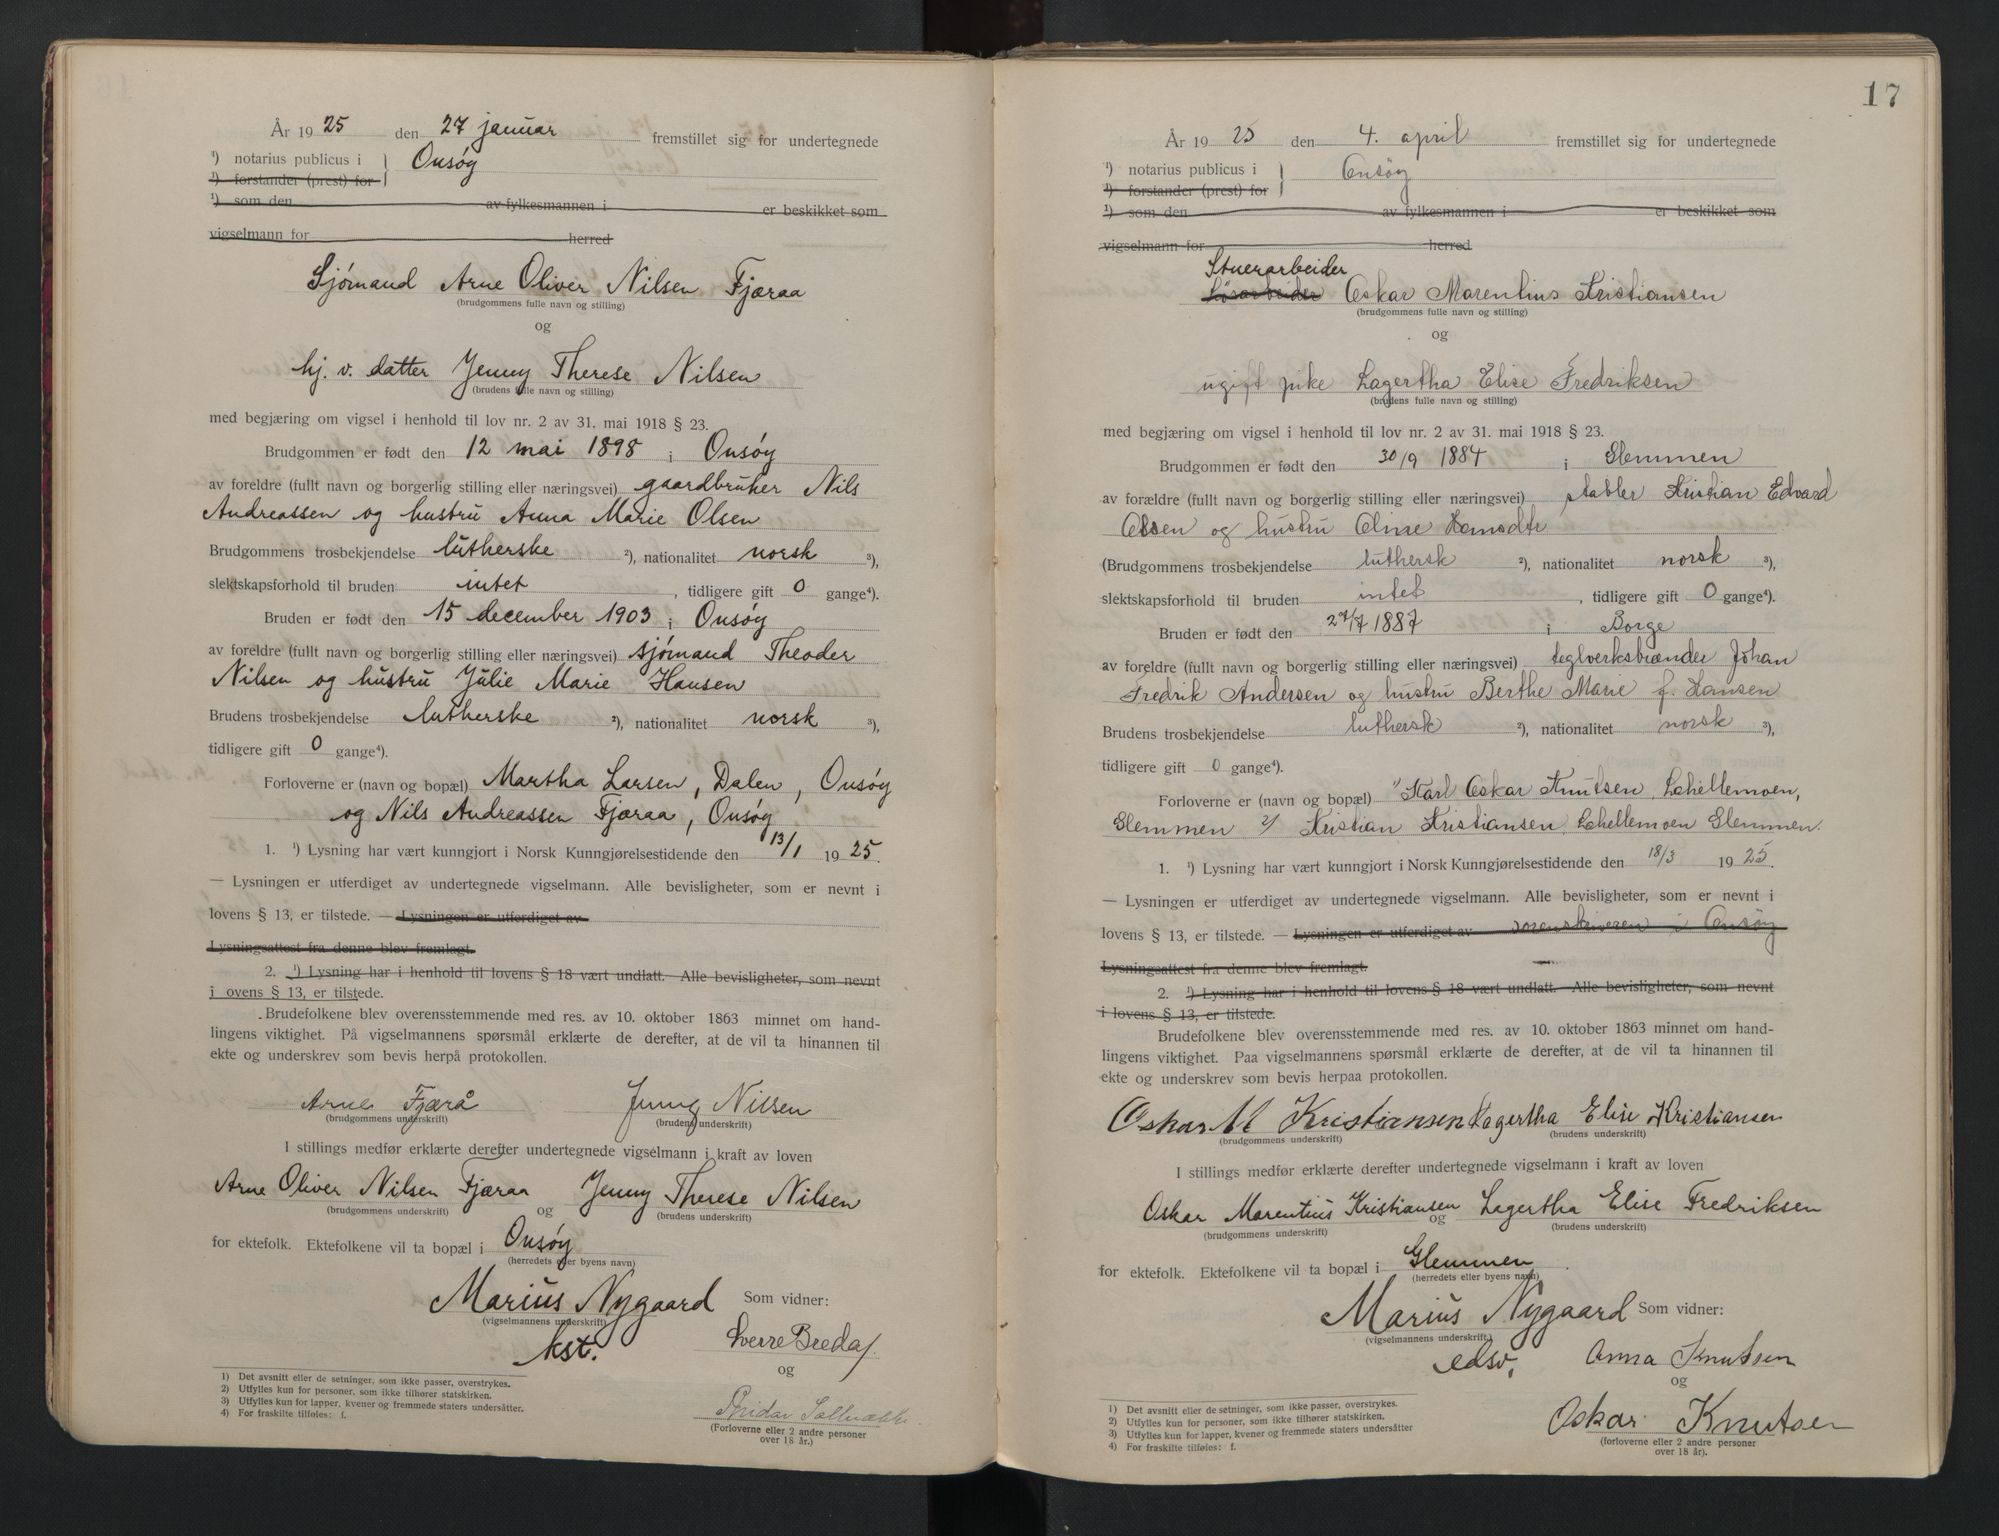 År 1925 den 27 januar fremstillet sig for undertegnede
¹) notarius publicus i } Onsøy
¹) forstander (prest) for
¹) som den av fylkesmannen i er beskikket som
vigselmann for herred
Sjømand Arne Oliver Nilsen Fjæraa
(brudgommens fulle navn og stilling)
og
hj. v. datter Jenny Therese Nilsen
(brudens fulle navn og stilling)
med begjæring om vigsel i henhold til lov nr. 2 av 31. mai 1918 § 23.
Brudgommen er født den 12 mai 1898 i Onsøy
av foreldre (fullt navn og borgerlig stilling eller næringsvei) gaardbruker Nils
Andreassen og hustru Anna Marie Olsen
Brudgommens trosbekjendelse lutherske ²), nationalitet norsk ³),
slektskapsforhold til bruden intet , tidligere gift 0 gange⁴).
Bruden er født den 15 december 1903 i Onsøy
av foreldre (fullt navn og borgerlig stilling eller næringsvei) sjømand Theodor
Nilsen og hustru Julie Marie Hansen
Brudens trosbekjendelse lutherske ²), nationalitet norsk ³),
tidligere gift 0 gange⁴).
Forloverne er (navn og bopæl) Martha Larsen, Dalen, Onsøy
og Nils Andreassen Fjæraa, Onsøy
1. ¹) Lysning har vært kunngjort i Norsk Kunngjørelsestidende den 13/1 1925.
— Lysningen er utferdiget av undertegnede vigselmann. Alle bevisligheter, som er nevnt i
lovens § 13, er tilstede. — Lysningen er utferdiget av
Lysningsattest fra denne blev fremlagt.
2. ¹) Lysning har i henhold til lovens § 18 vært undlatt. Alle bevisligheter, som nevnt
i ovens § 13, er tilstede.
Brudefolkene blev overensstemmende med res. av 10. oktober 1863 minnet om hand-
lingens viktighet. På vigselmannens spørsmål erklærte de derefter, at de vil ta hinannen til
ekte og underskrev som bevis herpå protokollen.
Arne Fjærå Jenny Nilsen
(brudgommens underskrift) (brudens underskrift)
I stillings medfør erklærte derefter undertegnede vigselmann i kraft av loven
Arne Oliver Nilsen Fjæraa og Jenny Therese Nilsen
(brudgommens underskrift) (brudens underskrift)
for ektefolk. Ektefolkene vil ta bopæl i Onsøy
(herredets eller byens navn)
Marius Nygaard Som vidner:
(vigselmannens underskrift)
kst. Sverre Bredaf.
og
(Forloverne eller 2 andre personer
over 18 år.)
1) Det avsnitt eller de setninger, som ikke passer, overstrykes.
2) Utfylles kun for personer, som ikke tilhører statskirken.
3) Utfylles kun for lapper, kvener og fremmede staters undersåtter.
4) For fraskilte tilføies: f.
17
År 1925 den 4. april fremstillet sig for undertegnede
¹) notarius publicus i } Onsøy
¹) forstander (prest) for
¹) som den av fylkesmannen i er beskikket som
vigselmann for herred
Stuerarbeider
Løsarbeider Oskar Marentius Kristiansen
(brudgommens fulle navn og stilling)
og
ugift pike Lagertha Elise Fredriksen
(brudens fulle navn og stilling)
med begjæring om vigsel i henhold til lov nr. 2 av 31. mai 1918 § 23.
Brudgommen er født den 30/9 1884 i Glemmen
av forældre (fullt navn og borgerlig stilling eller næringsvei) stabler Kristian Edvard
Olsen og hustru Oline Hansdtr
(Brudgommens trosbekjendelse luthersk ²), nationalitet norsk ³),
slektskapsforhold til bruden intet , tidligere gift 0 gange⁴).
Bruden er født den 27/7 1887 i Borge
av foreldre (fullt navn og borgerlig stilling eller næringsvei) teglverksbrænder Johan
Fredrik Andersen og hustru Berthe Marie f. Hansen
Brudens trosbekjendelse luthersk ²), nationalitet norsk ³),
tidligere gift 0 gange⁴).
Forloverne er (navn og bopæl) 1/ Karl Oskar Knutsen, Lahellemoen,
Glemmen 2/ Kristian Kristiansen, Lahellemoen Glemmen.
1. ¹) Lysning har vært kunngjort i Norsk Kunngjørelsestidende den 18/3 1925.
— Lysningen er utferdiget av undertegnede vigselmann. Alle bevisligheter, som er nevnt i
lovens § 13, er tilstede. — Lysningen er utferdiget av sorenskriveren i Onsøy
Lysningsattest fra denne blev fremlagt.
2. ¹) Lysning har i henhold til lovens § 18 vært undlatt. Alle bevisligheter, som nevnt
i lovens § 13, er tilstede.
Brudefolkene blev overensstemmende med res. av 10. oktober 1863 minnet om hand-
lingens viktighet. Paa vigselmannens spørsmål erklærte de derefter, at de vil ta hinannen til
ekte og underskrev som bevis herpaa protokollen.
Oskar M Kristiansen Lagertha Elise Kristiansen
(brudgommens underskrift) (brudens underskrift)
I stillings medfør erklærte derefter undertegnede vigselmann i kraft av loven
Oskar Marentius Kristiansen og Lagertha Elise Fredriksen
(brudgommens underskrift) (brudens underskrift)
for ektefolk. Ektefolkene vil ta bopæl i Glemmen.
(herredets eller byens navn)
Marius Nygaard Som vidner:
(vigselmannens underskrift)
edsv. Anna Knutsen
og
Oskar Knutsen
(forloverne eller 2 andre personer
over 18 år).
1) Det avsnitt eller de setninger, som ikke passer, overstrykes.
2) Utfylles kun for personer, som ikke tilhører statskirken.
3) Utfylles kun for lapper, kvener og fremmede staters undersåtter
4) For fraskilte tilføies: f.